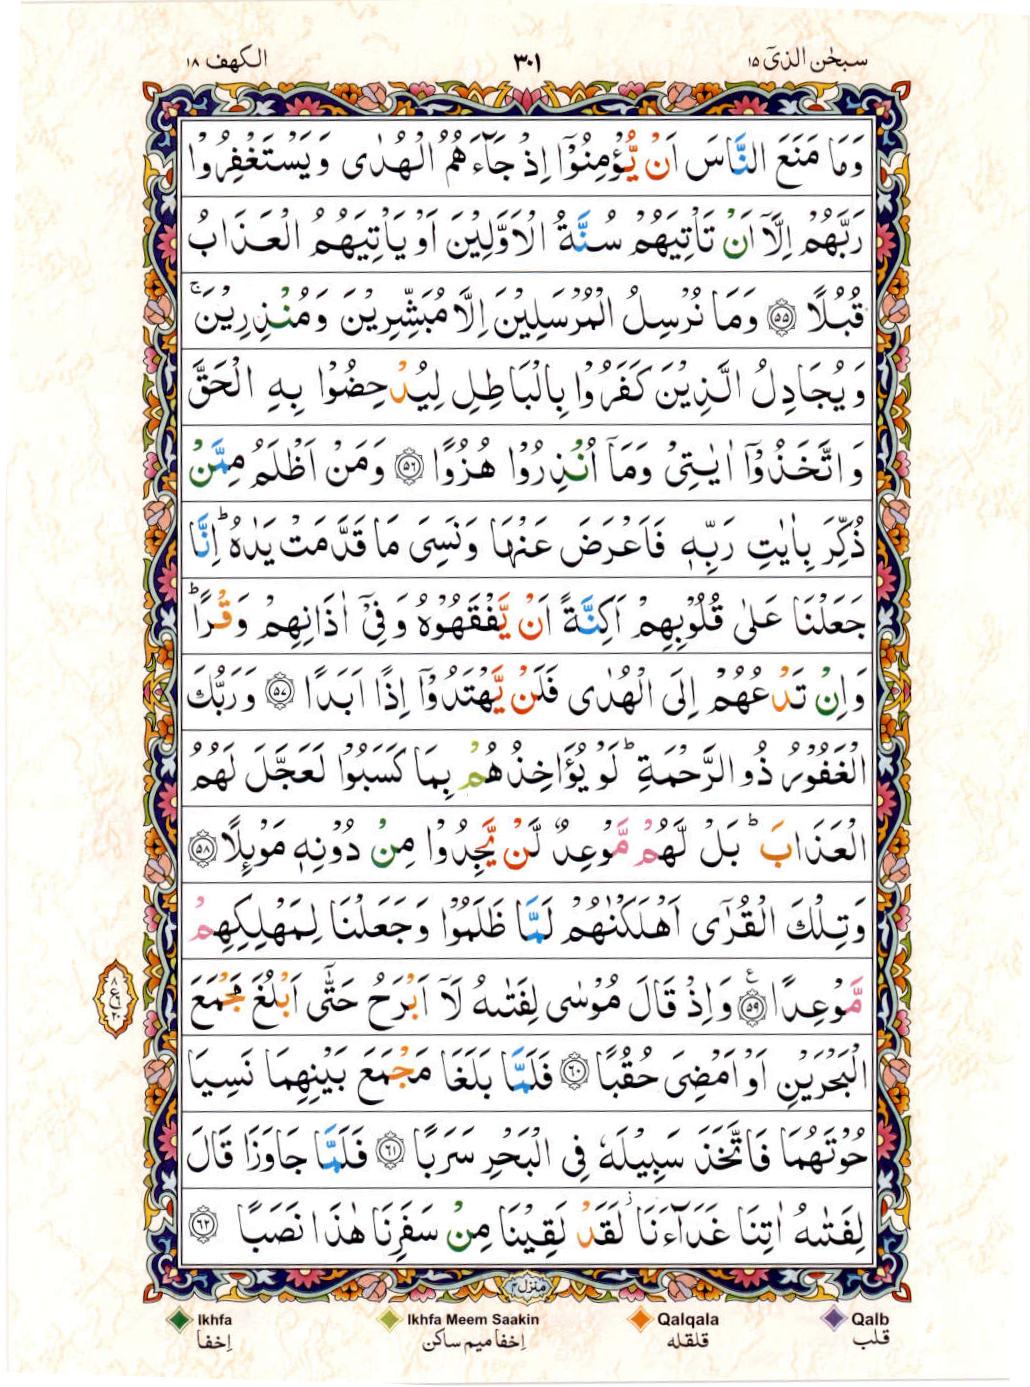 سبحٰن الذیٓ ۱۵
۳۰۱
الکہف ۱۸
وَمَا مَنَعَ النَّاسَ اَنْ يُّؤْمِنُوْٓا اِذْ جَآءَهُمُ الْهُدٰى وَيَسْتَغْفِرُوْا
رَبَّهُمْ اِلَّآ اَنْ تَاْتِيَهُمْ سُنَّةُ الْاَوَّلِيْنَ اَوْ يَاْتِيَهُمُ الْعَذَابُ
قُبُلًا ﴿۵۵﴾ وَمَا نُرْسِلُ الْمُرْسَلِيْنَ اِلَّا مُبَشِّرِيْنَ وَمُنْذِرِيْنَ ۚ
وَيُجَادِلُ الَّذِيْنَ كَفَرُوْا بِالْبَاطِلِ لِيُدْحِضُوْا بِهِ الْحَقَّ
وَاتَّخَذُوْٓا اٰيٰتِيْ وَمَآ اُنْذِرُوْا هُزُوًا ﴿۵۶﴾ وَمَنْ اَظْلَمُ مِمَّنْ
ذُكِّرَ بِاٰيٰتِ رَبِّهٖ فَاَعْرَضَ عَنْهَا وَنَسِيَ مَا قَدَّمَتْ يَدٰهُ ؕ اِنَّا
جَعَلْنَا عَلٰى قُلُوْبِهِمْ اَكِنَّةً اَنْ يَّفْقَهُوْهُ وَفِيْٓ اٰذَانِهِمْ وَقْرًا ؕ
وَاِنْ تَدْعُهُمْ اِلَى الْهُدٰى فَلَنْ يَّهْتَدُوْٓا اِذًا اَبَدًا ﴿۵۷﴾ وَرَبُّكَ
الْغَفُوْرُ ذُو الرَّحْمَةِ ؕ لَوْ يُؤَاخِذُهُمْ بِمَا كَسَبُوْا لَعَجَّلَ لَهُمُ
الْعَذَابَ ؕ بَلْ لَّهُمْ مَّوْعِدٌ لَّنْ يَّجِدُوْا مِنْ دُوْنِهٖ مَوْئِلًا ﴿۵۸﴾
وَتِلْكَ الْقُرٰٓى اَهْلَكْنٰهُمْ لَمَّا ظَلَمُوْا وَجَعَلْنَا لِمَهْلِكِهِمْ
مَّوْعِدًا ﴿۵۹﴾ ع وَاِذْ قَالَ مُوْسٰى لِفَتٰىهُ لَآ اَبْرَحُ حَتّٰٓى اَبْلُغَ مَجْمَعَ
الْبَحْرَيْنِ اَوْ اَمْضِيَ حُقُبًا ﴿۶۰﴾ فَلَمَّا بَلَغَا مَجْمَعَ بَيْنِهِمَا نَسِيَا
حُوْتَهُمَا فَاتَّخَذَ سَبِيْلَهٗ فِي الْبَحْرِ سَرَبًا ﴿۶۱﴾ فَلَمَّا جَاوَزَا قَالَ
لِفَتٰىهُ اٰتِنَا غَدَآءَنَا ز لَقَدْ لَقِيْنَا مِنْ سَفَرِنَا هٰذَا نَصَبًا ﴿۶۲﴾
منزل ۴
Ikhfa
Ikhfa Meem Saakin
Qalqala
Qalb
اِخفا
اِخفا میم ساکن
قلقله
قلب